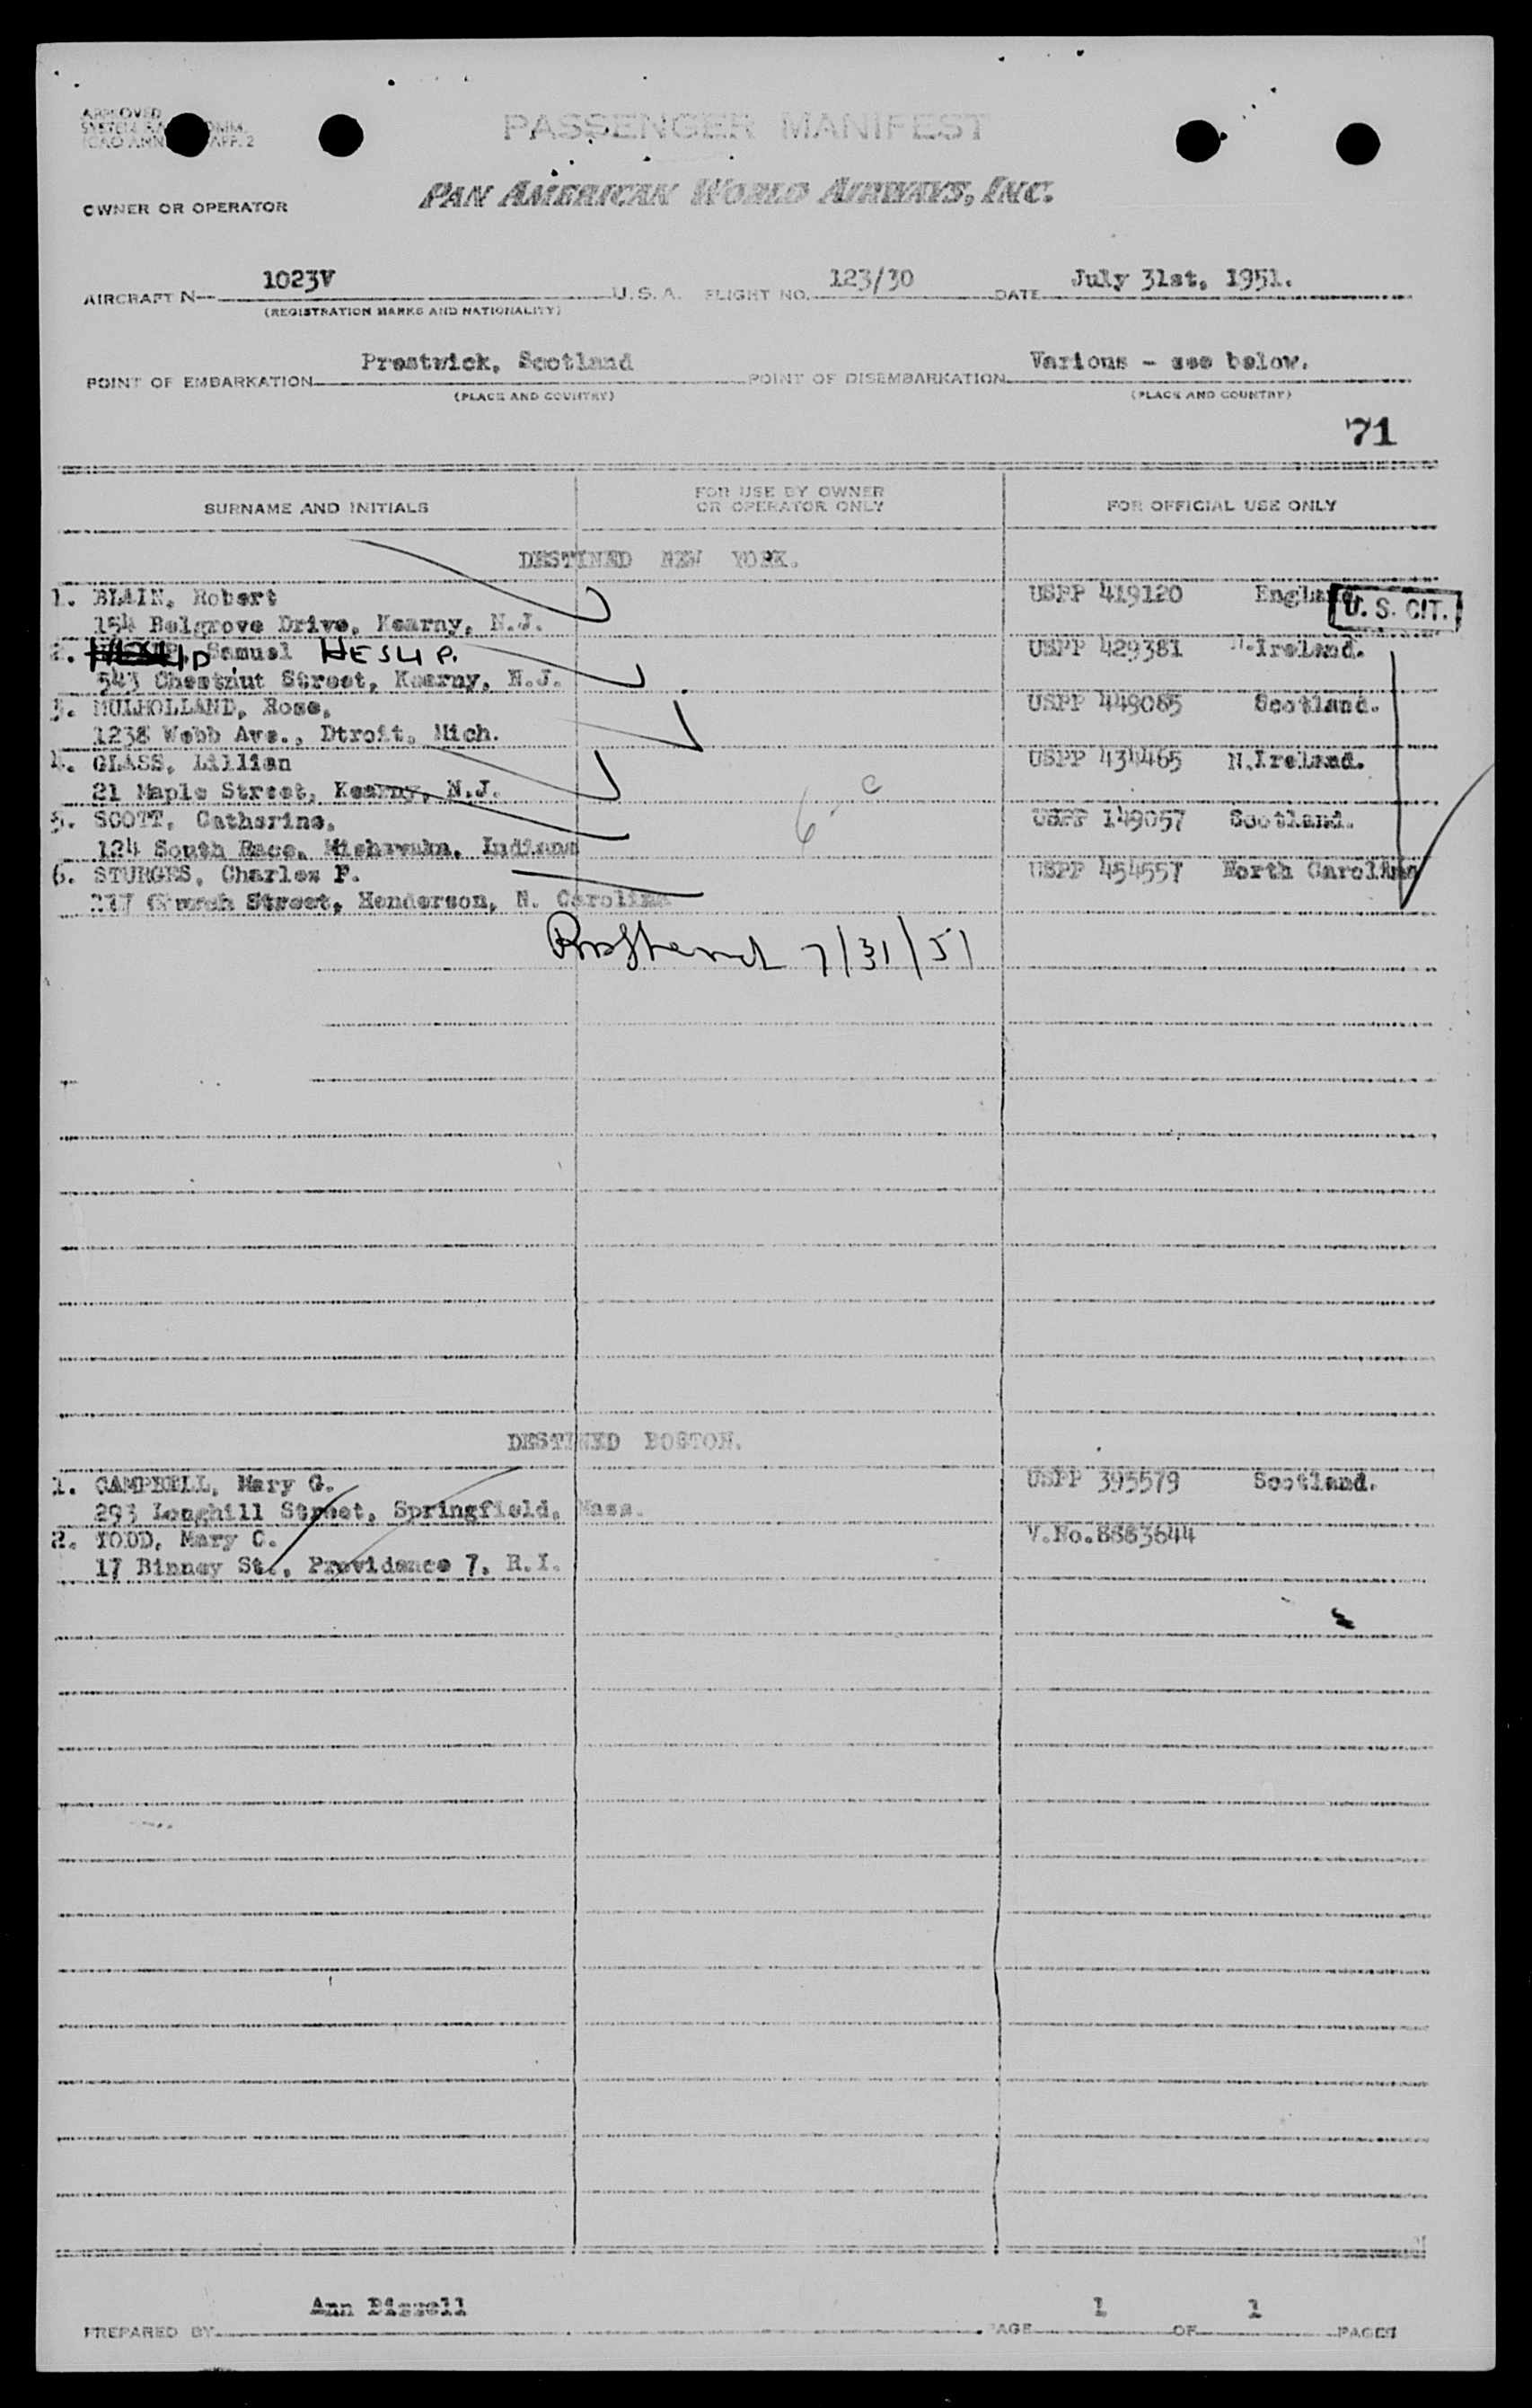 APPROVED
APP. 2
PASSENGER MANIFEST
PAN AMERICAN WORLD AIRWAYS, INC.
OWNER OR OPERATOR
AIRCRAFT N- 1023V U.S.A. FLIGHT NO. 123/30 DATE July 31st, 1951.
(REGISTRATION MARKS AND NATIONALITY)
POINT OF EMBARKATION Prestwick, Scotland POINT OF DISEMBARKATION Various - see below.
(PLACE AND COUNTRY) (PLACE AND COUNTRY)
71
SURNAME AND INITIALS FOR USE BY OWNER OR OPERATOR ONLY FOR OFFICIAL USE ONLY
DESTINED NEW YORK.
1. BLAIN, Robert USPP 419120 England. U.S. CIT.
154 Belgrove Drive, Kearny, N.J.
2. Samuel HESLIP. USPP 429381 N.Ireland.
543 Chestnut Street, Kearny, N.J.
3. MULHOLLAND, Rose, USPP 449085 Scotland.
1238 Webb Ave., Dtroit, Mich.
4. GLASS, Lillian USPP 434465 N.Ireland.
21 Maple Street, Kearny, N.J.
5. SCOTT, Catherine, USPP 149057 Scotland.
124 South Race, Mishawaka, Indiana
6. STURGES, Charles P. USPP 454557 North Carolina
Church Street, Henderson, N. Carolina
6 c
7/31/51
DESTINED BOSTON.
1. CAMPBELL, Mary G. USPP 395579 Scotland.
293 Longhill Street, Springfield, Mass.
2. TODD, Mary C. V.No.8883644
17 Binney St., Providence 7, R.I.
PREPARED BY Ann Bissell PAGE 1 OF 1 PAGES